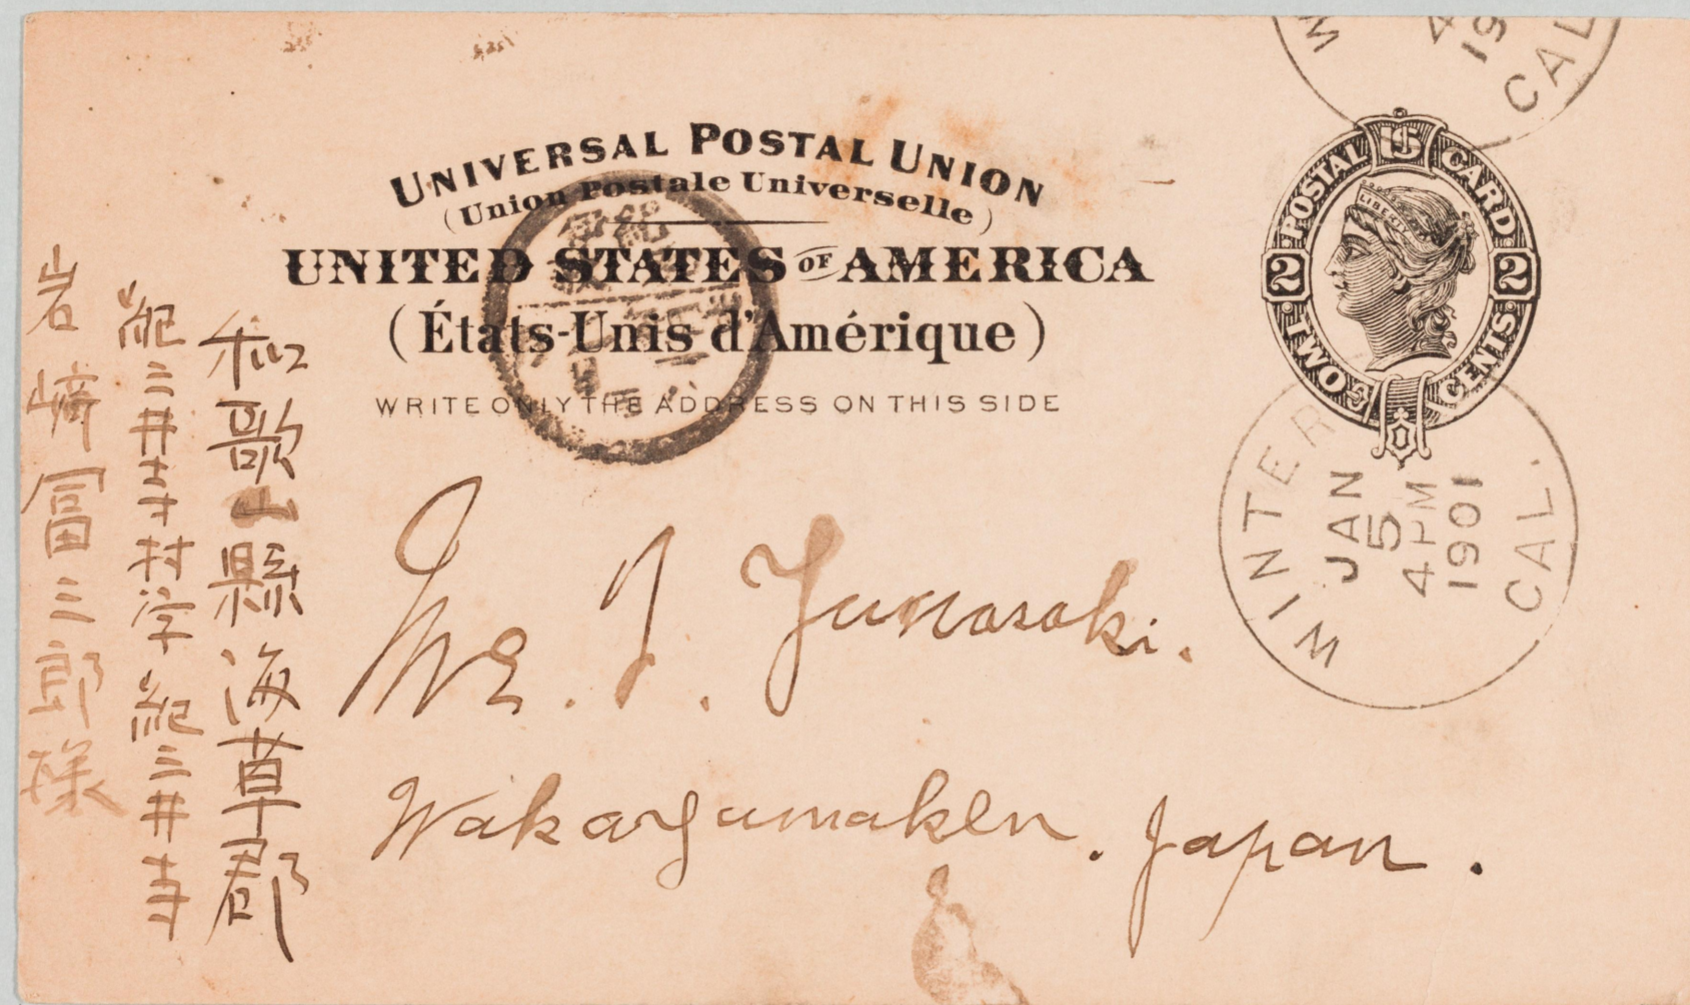 UNIVERSAL POSTAL UNION
(Union Postale Universelle)
UNITED STATES OF AMERICA
(États-Unis d'Amérique)
WRITE ONLY THE ADDRESS ON THIS SIDE
POSTAL CARD
US
LIBERTY
2 2
TWO CENTS
W
4
19
CAL
WINTERS
JAN
5
4PM
1901
CAL.
Mr. J. Yuwasaki.
Wakayamaken. Japan.
和歌山縣海草郡
紀三井寺村字紀三井寺
岩﨑冨三郎様